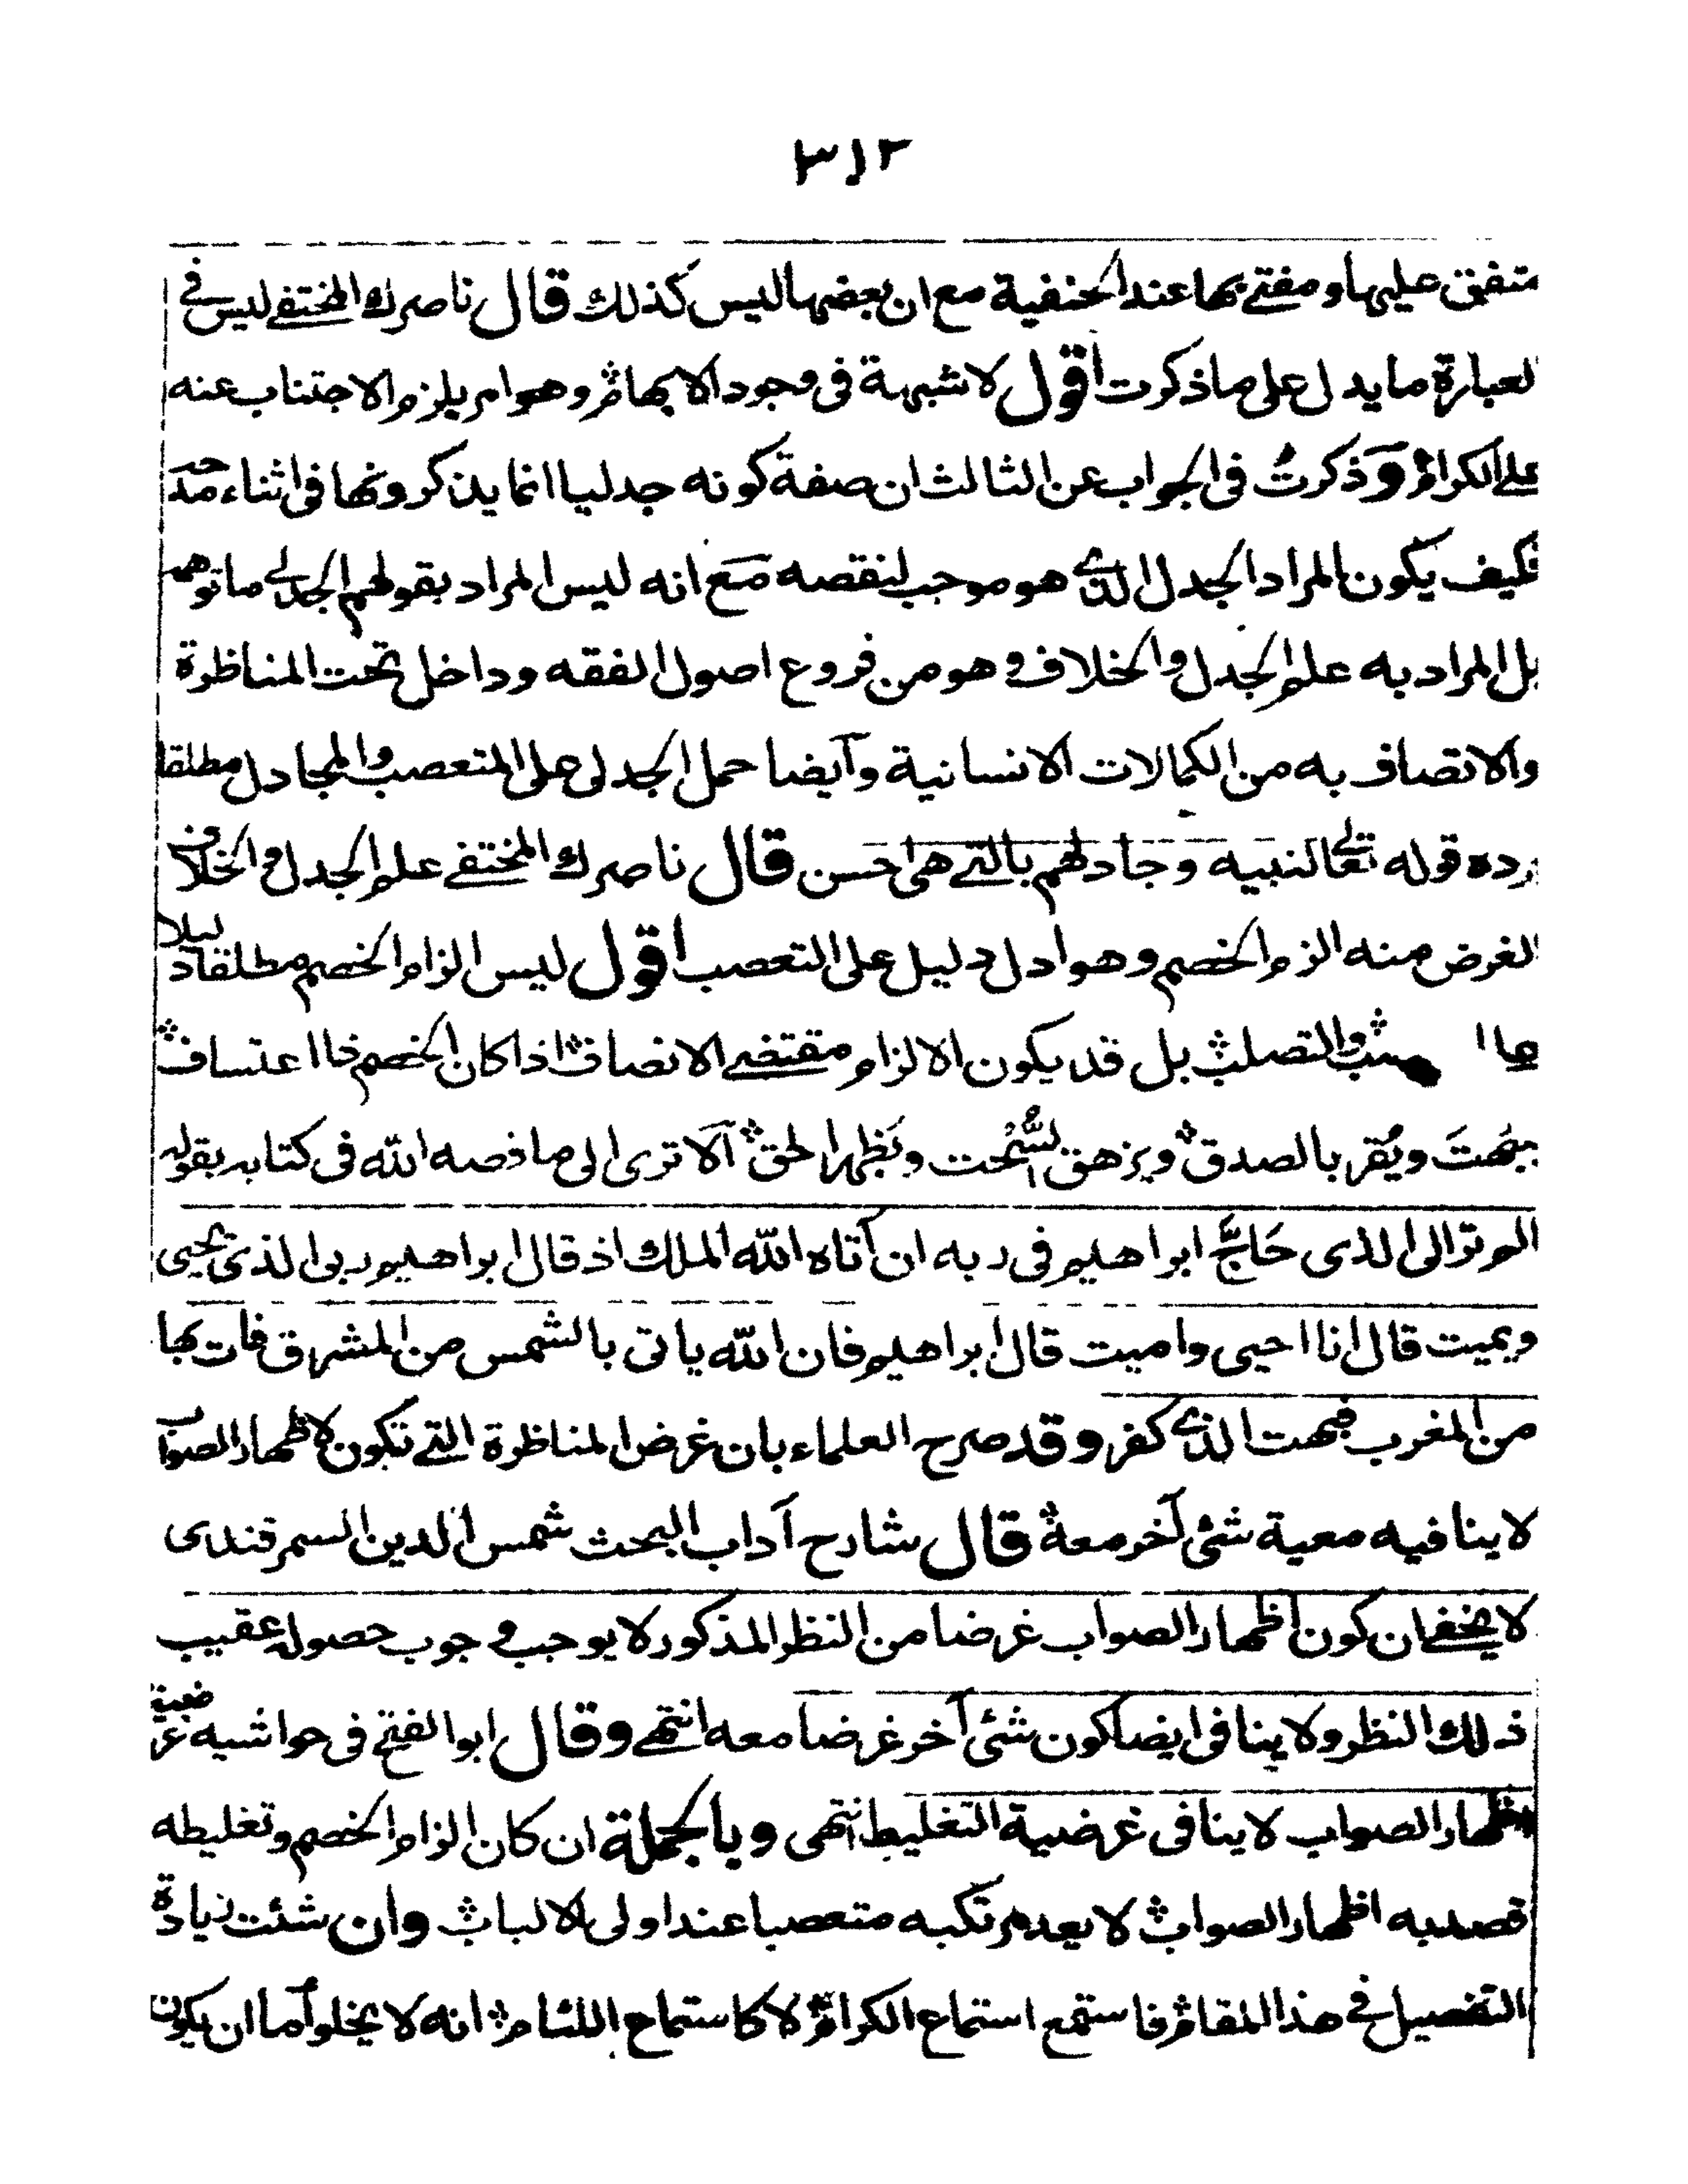 ٣١٢
متفق عليها ومفتے بها عند الحنفية مع ان بعضها ليس كذلك قال ناصرك المختفے ليس فے
لعبارة ما يدل على ما ذكرت اقول لا شبهة فى وجود الابهام وهو امر يلزم الاجتناب عنه
على الكرام وذكرتُ فى الجواب عن الثالث ان صفة كونه جدليا انما يذكرونها فى اثناء مدحه
فكيف يكون المراد الجدل الذے هو موجب لنقصه مع انه ليس المراد بقولهم الجدلے ما توهمه
بل المراد به علم الجدل والخلاف وهو من فروع اصول الفقه وداخل تحت المناظرة
والاتصاف به من الكمالات الانسانية وآيضا حمل الجدلى على المتعصب والمجادل مطلقا
رده قوله تعالى لنبيه وجادلهم بالتے هى احسن قال ناصرك المختفے علم الجدل والخلاف
الغرض منه الزام الخصم وهو ادل دليل على التعصب اقول ليس الزام الخصم مطلقا دليلا
والتصلب بل قد يكون الالزام مقتضے الانصاف اذا كان الخصم ذا اعتساف
يبهتَ ويُقر بالصدق ويزهق السُّحت ويَظهر الحق آلا ترى الى ما نصه الله فى كتابه بقوله
الم تر الى الذى حَاجَّ ابراهيم فى ربه ان آتاه الله الملك اذ قال ابراهيم ربى الذى يحيى
ويميت قال انا احيى واميت قال ابراهيم فان الله ياتى بالشمس من المشرق فات بها
من المغرب فبهت الذے كفر وقد صرح العلماء بان غرض المناظرة التے تكون لاظهار الصواب
لا ينافيه معية شئ آخر معه قال شارح آداب البحث شمس الدين السمرقندى
لا يخفے ان كون اظهار الصواب غرضا من النظر المذكور لا يوجب وجوب حصوله عقيب
ذلك النظر ولا ينافى ايضا كون شئ آخر غرضا معه انتهے وقال ابو الفتح فى حواشيه غرضية
اظهار الصواب لا ينافى غرضية التغليط انتهى وبالجملة ان كان الزام الخصم وتغليطه
قصد به اظهار الصواب لا يعد مرتكبه متعصبا عند اولى الالباب وان شئت زيادة
التفصيل فے هذا المقام فاستمع استماع الكرام لا كاستماع اللئام انه لا يخلو اما ان يكون